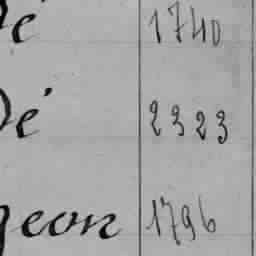 é 1740
é 2323
geon 1796